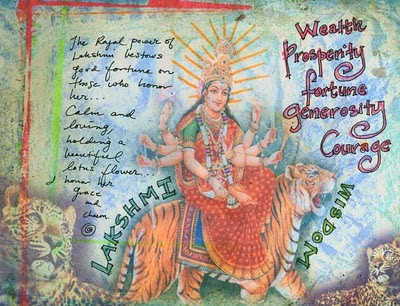 The Royal power of
Lakshmi bestows
good fortune on
those who honor
her...
Calm and
loving,
holding a
beautiful
lotus flower...
I honor her
grace
and
charm.
Wealth
Prosperity
fortune
generosity
Courage
LAKSHMI
WISDOM